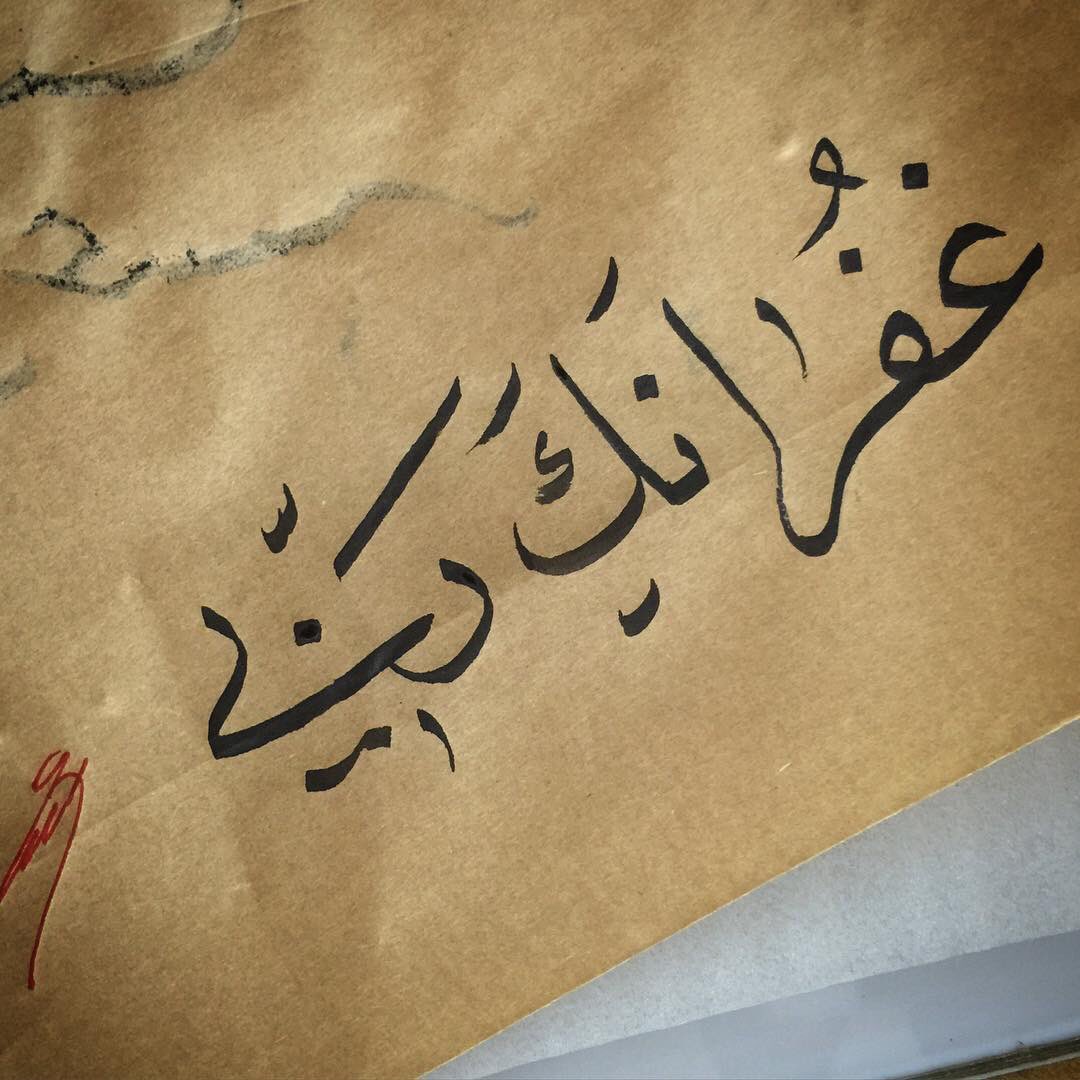 غُفرانَكَ رَبَّنا